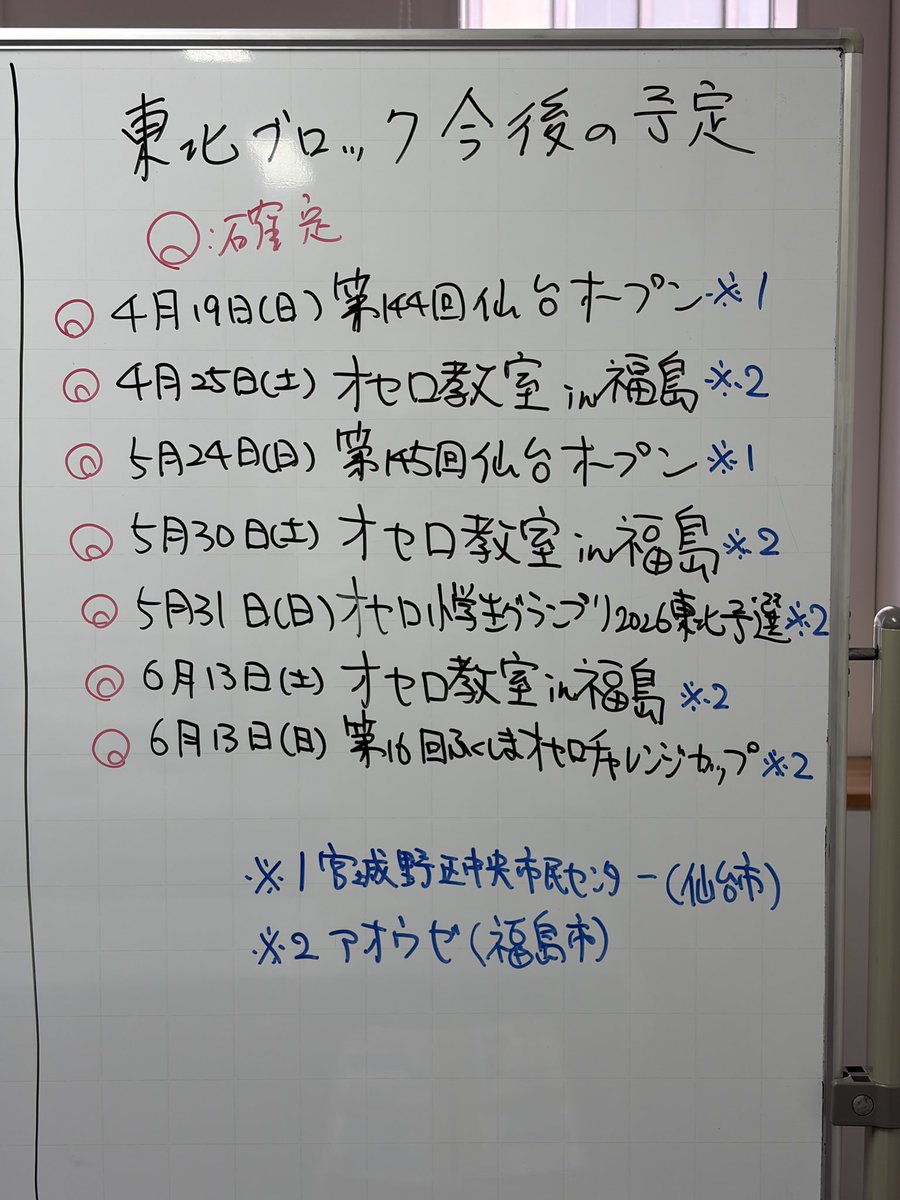 東北ブロック今後の予定
◎:確定
◎ 4月19日(日) 第144回仙台オープン※1
◎ 4月25日(土) オセロ教室in福島※2
◎ 5月24日(日) 第145回仙台オープン※1
◎ 5月30日(土) オセロ教室in福島※2
◎ 5月31日(日) オセロ小学生グランプリ2026東北予選※2
◎ 6月13日(土) オセロ教室in福島※2
◎ 6月13日(日) 第16回ふくしまオセロチャレンジカップ※2
※1 宮城野区中央市民センター(仙台市)
※2 アオウゼ(福島市)